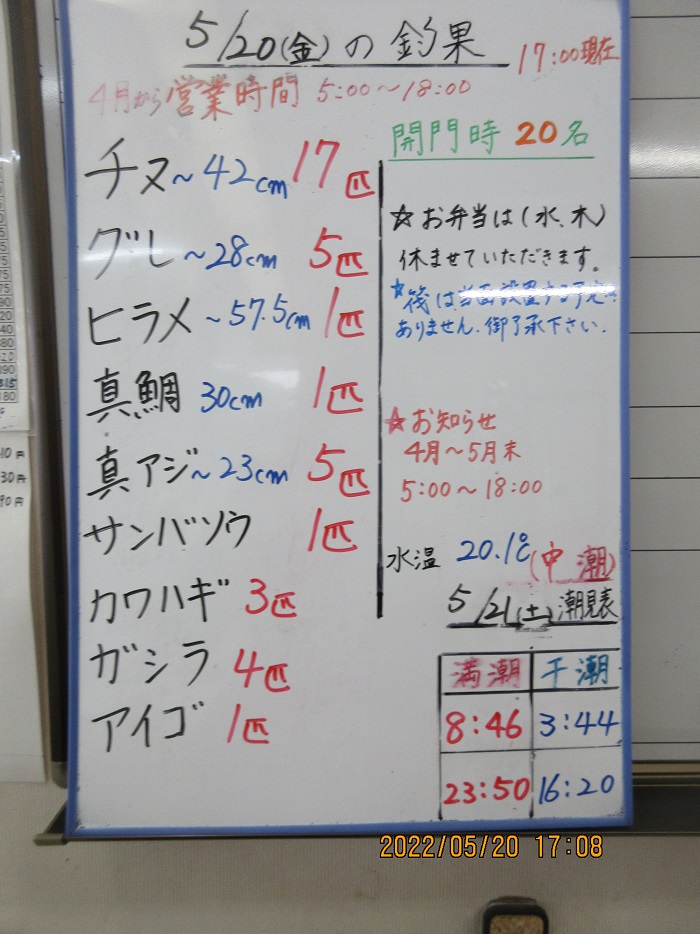 5/20(金)の釣果
17:00現在
4月から営業時間 5:00～18:00
チヌ～42cm 17匹
グレ～28cm 5匹
ヒラメ～57.5cm 1匹
真鯛 30cm 1匹
真アジ～23cm 5匹
サンバソウ 1匹
カワハギ 3匹
ガシラ 4匹
アイゴ 1匹
開門時 20名
☆お弁当は(水、木)
休ませていただきます。
☆筏は当面設置する予定は
ありません.御了承下さい.
☆お知らせ
4月～5月末
5:00～18:00
水温 20.1℃(中潮)
5/21(土)潮見表
満潮 干潮
8:46 3:44
23:50 16:20
2022/05/20 17:08
10円
30円
90円